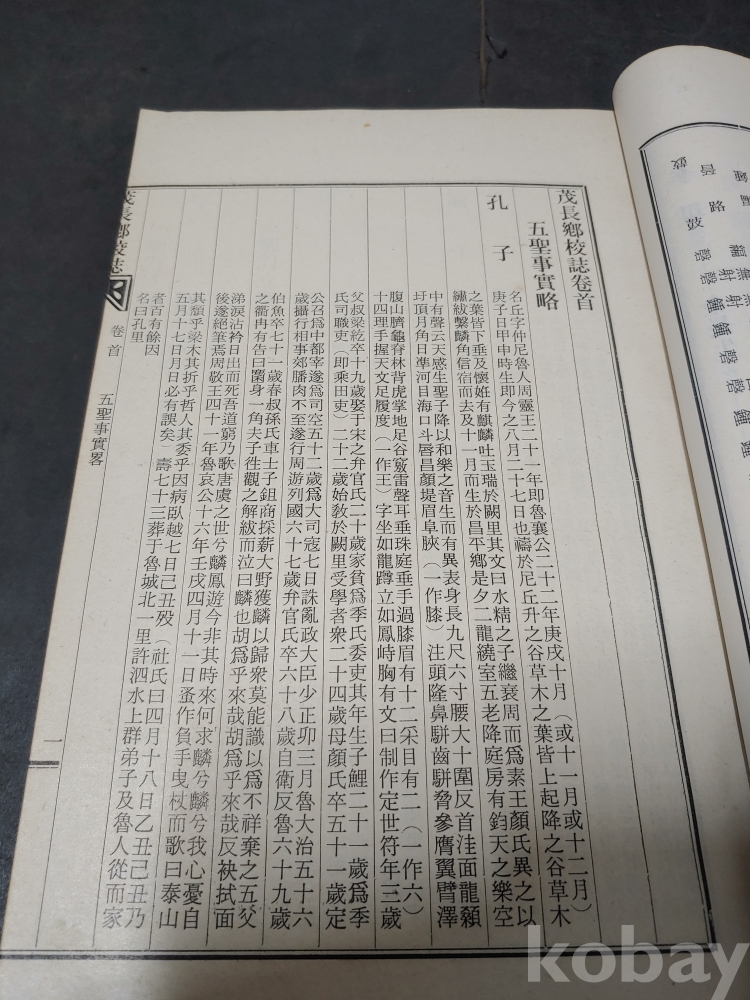 茂長鄕校誌卷首
五聖事實略
孔子
名丘字仲尼魯人周靈王二十一年即魯襄公二十二年庚戌十月（或十一月或十二月）
庚子日甲申時生即今之八月二十七日也禱於尼丘升之谷草木之葉皆上起降之谷草木
之葉皆下垂及懷姙有麒麟吐玉瑞於闕里其文曰水精之子繼衰周而爲素王顏氏異之以
繡紱繫麟角信宿而去及十一月而生於昌平鄕是夕二龍繞室五老降庭房有鈞天之樂空
中有聲云天感生聖子降以和樂之音生而有異表身長九尺六寸腰大十圍反首洼面龍顙
圩頂月角日準河目海口斗唇昌顏堤眉阜脥（一作膝）注頭隆鼻騈齒騈脅參膺翼臂澤
腹山臍龜脊林背虎掌地足谷竅雷聲耳垂珠庭垂手過膝眉有十二采目有二（一作六）
十四理手握天文足履度（一作王）字坐如龍蹲立如鳳峙胸有文曰制作定世符年三歲
父叔梁紇卒十九歲娶于宋之弁官氏二十歲家貧爲季氏委吏其年生子鯉二十一歲爲季
氏司職吏（即乘田吏）二十二歲始敎於闕里受學者衆二十四歲母顏氏卒五十一歲定
公召爲中都宰遂爲司空五十二歲爲大司寇七日誅亂政大臣少正卯三月魯大治五十六
歲攝行相事郊膰肉不至遂行周游列國六十七歲弁官氏卒六十八歲自衛反魯六十九歲
伯魚卒七十一歲春叔孫氏車士子鉏商採薪大野獲麟以歸衆莫能識以爲不祥棄之五父
之衢冉有告曰麕身一角夫子徃觀之解紱而泣曰麟也胡爲乎來哉胡爲乎來哉反袂拭面
涕淚沾衿曰出而死吾道窮乃歌唐虞之世兮麟鳳遊今非其時來何求麟兮麟兮我心憂自
後遂絕筆焉周敬王四十一年魯哀公十六年壬戌四月十一日蚤作負手曳杖而歌曰泰山
其頹乎梁木其折乎哲人其委乎因病臥越七日己丑歿（社氏曰四月十八日乙丑己丑乃
五月十七日月日必有誤矣）壽七十三葬于魯城北一里許泗水上群弟子及魯人從而家
者百有餘因
名曰孔里
茂長鄕校誌
卷首
五聖事實畧
一
kobay